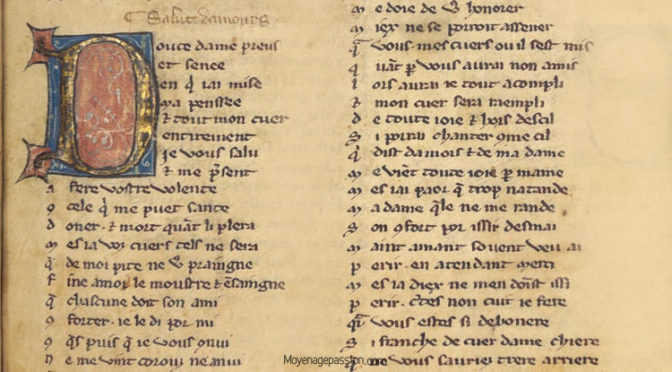 Salut damours
Douce dame preus
et senee
en q̄ iai mise
ma penssee
⁊ tout mon cuer
entirement
ie vous salu
⁊ me p̄sent
a fere vostre volente
9 cele q̇ me puet sante
d oner ⁊ mort quāt li plera
m es ia vo cuers tels ne sera
q̄ de moi pite ne
f ine amor le moustre ⁊ ēsaingne
q̄ chascune doit son ami
9 forter ie le di por mi
9 q̄s puis q̄ ie vous
n e me vint
m e doie de honorer
m iex ne se porroit assener
q̄ vous mes cuers ou il sest mis
q uāt p̱ vous aurai non amis
l ors aurai ie tout acompli
⁊ mon cuer sera raempli
d e toute ioie ⁊ hors
s i porrai chanter 9me cil
q̇ dist damors ⁊ de ma dame
m e viēt toute ioie p̱ mame
m es iai paor q̄ trop natande
m a dame q̄le ne me rande
s on 9fort por issir desmai
m aint amant souent veu ai
p erir en atendant merci
m es ia diex ne men doīst issi
p erir c̄tes non cuit ie fere
q̄r vous estes si debonere
s i franche de cuer dame chiere
q̄ ne vous sauriez trere arriere
Moyenagepassion.com